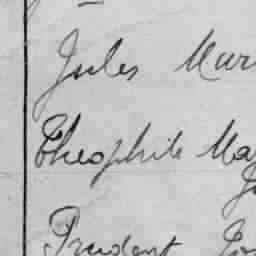 Jules Mur
Theophile Ma
Prudent Jo